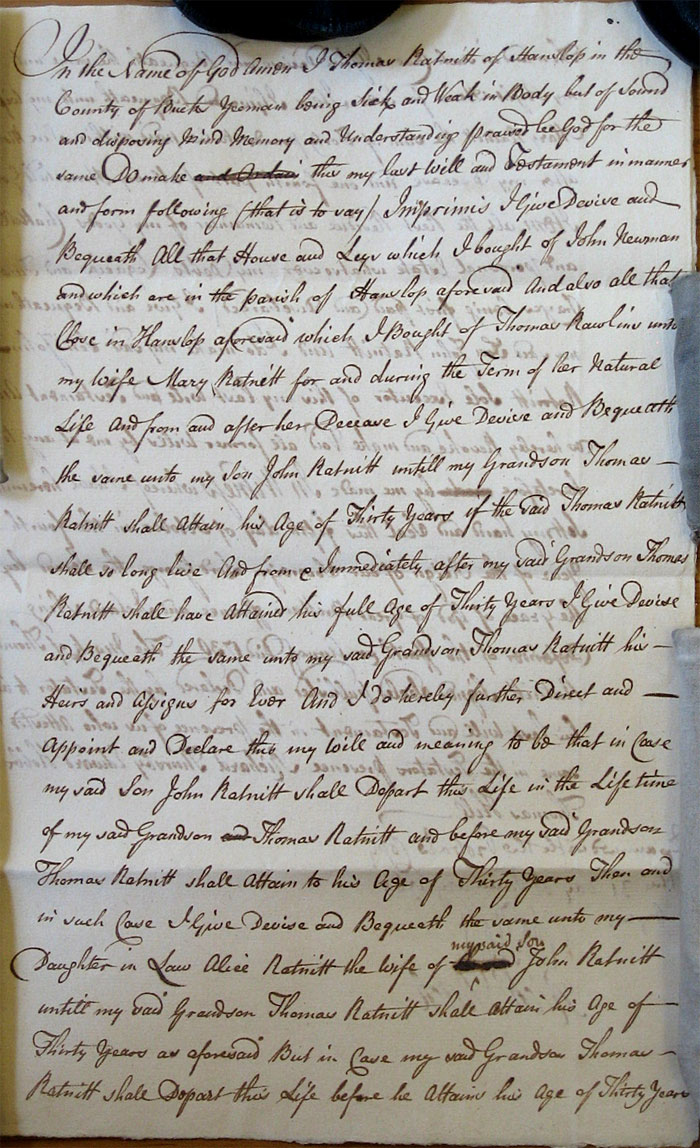 In the Name of God Amen I Thomas Ratnitt of Hanslop in the
County of Bucks Yeoman being Sick and Weak in Body but of Sound
and disposing Mind Memory and Understanding praised bee God for the
same Do make and Ordain this my last Will and Testament in manner
and form following (that is to say) Imprimis I Give Devise and
Bequeath All that House and Leys which I bought of John Newman
and which are in the parish of Hanslop aforesaid And also all that
Close in Hanslop aforesaid which I Bought of Thomas Rawlins unto
my wife Mary Ratnitt for and during the Term of her Natural
Life And from and after her Decease I Give Devise and Bequeath
the same unto my Son John Ratnitt untill my Grandson Thomas —
Ratnitt shall Attain his Age of Thirty Years if the said Thomas Ratnitt
shall so long live And from & Immediately after my said Grandson Thomas
Ratnitt shall have Attained his full Age of Thirty Years I Give Devise
and Bequeath the same unto my said Grandson Thomas Ratnitt his —
Heirs and Assigns for Ever And I do hereby further Direct and —
Appoint and Declare this my Will and meaning to be that in Case
my said Son John Ratnitt shall Depart this Life in the Life time
of my said Grandson and Thomas Ratnitt and before my said Grandson
Thomas Ratnitt shall Attain to his Age of Thirty Years Then and
in such Case I Give Devise and Bequeath the same unto my —
my said Son
Daughter in Law Alice Ratnitt the Wife of John Ratnitt
untill my said Grandson Thomas Ratnitt shall Attain his Age of —
Thirty Years as aforesaid But in Case my said Grandson Thomas —
Ratnitt shall Depart this Life before he Attains his Age of Thirty Years